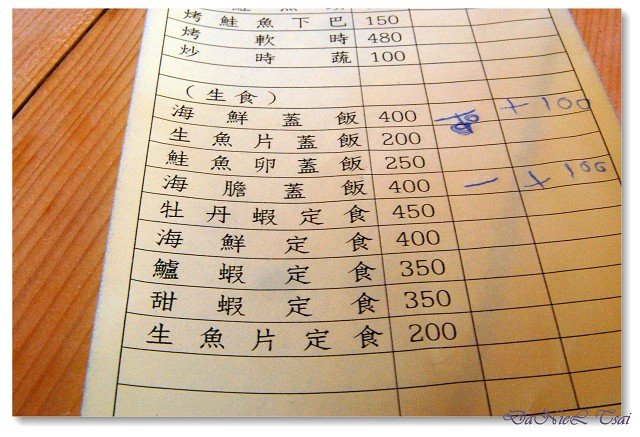 烤鮭魚下巴 150
烤軟時 480
炒時蔬 100
(生食)
海鮮蓋飯 400 + 100
生魚片蓋飯 200
鮭魚卵蓋飯 250
海膽蓋飯 400 一 + 100
牡丹蝦定食 450
海鮮定食 400
鱸蝦定食 350
甜蝦定食 350
生魚片定食 200
DaNieL Tsai